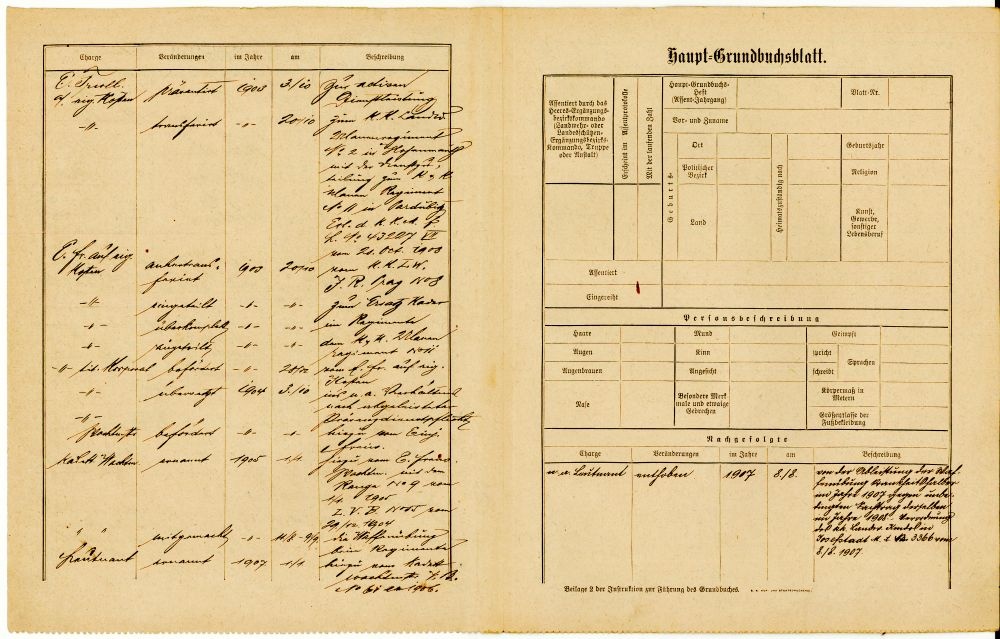 Charge Veränderungen im Jahre am Beschreibung
E. Freill. präsentirt 1903 3/10 zur activen
a/ eig. Kosten Dienstleistung
-"- transferirt -"- 20/10 zum K. K. Landw.
Ulanenregiment
No 2 in
mit der Dienstzu-
teilung zum K. u. K.
Ulanen Regiment
No 11 in Pardubitz
Erl. d. K. K.
No 43227 IV
vom 20. Oct. 1903
E. Fr. auf eig. Kosten anhertrans-ferirt 1903 20/10 vom K. K. L. W.
I. R. Prag No 8
-"- eingeteilt -"- -"- zum Ersatz Kader
-"- überkomplet -"- -"- im Regimente
-"- zugeteilt -"- -"- dem K. u. K. Ulanen
regiment No 11.
-"- tit. Korporal befördert -"- vom E. Fr. auf eig.
Kosten
-"- übersetzt 1904 3/10 ins n. a. Verhältnis
nach abgeleisteter
Präsenzdienstpflicht
Wachtm. befördert -"- -"- hiezu vom Einj.
Freiw.
Kadett Wachtm. ernannt 1905 1/1 hiezu vom E. Freiw.
Wachtm. mit dem
Range No 9 vom
1/1 1905
L. V. B. No 55 vom
29/12 1904
" " mitgemacht -"- 11/8 - 7/9 die Waffenübung
beim Regimente
Leutnant ernannt 1907 1/1 hiezu vom Kadett
wachtm.
No 61 ex 1906.
Haupt-Grundbuchsblatt.
Assentiert durch das
Heeres-Ergänzungs-
bezirkskommando
(Landwehr- oder
Landesschützen-
Ergänzungsbezirks-
Kommando, Truppe
oder Anstalt)
Erscheint im Assentprotokolle
Mit der laufenden Zahl
Haupt-Grundbuchs-
Heft
(Assent-Jahrgang)
Blatt-Nr.
Vor- und Zuname
Geburts-
Ort
Politischer
Bezirk
Land
Heimatszuständig nach
Geburtsjahr
Religion
Kunst,
Gewerbe,
sonstiger
Lebensberuf
Assentiert
Eingereiht
Personsbeschreibung
Haare Mund Geimpft
Augen Kinn spricht Sprachen
Augenbrauen Angesicht schreibt
Nase Besondere Merk
male und etwaige
Gebrechen
Körpermaß in
Metern
Größenklasse der
Fußbekleidung
Nachgefolgte
Charge Veränderungen im Jahre am Beschreibung
n. a. Leutnant enthoben 1907 8./8. von der Ableistung der Waf-
fenübung krankheitshalber
im Jahre 1907 gegen unbe-
dingten Eintrag derselben
im Jahre 1908. Verordnung
des kk Landw Kmdos in
Josefstadt M. A. No 3366 vom
8./8. 1907.
Beilage 2 der Instruktion zur Führung des Grundbuches. K. K. HOF- UND STAATSDRUCKEREI.